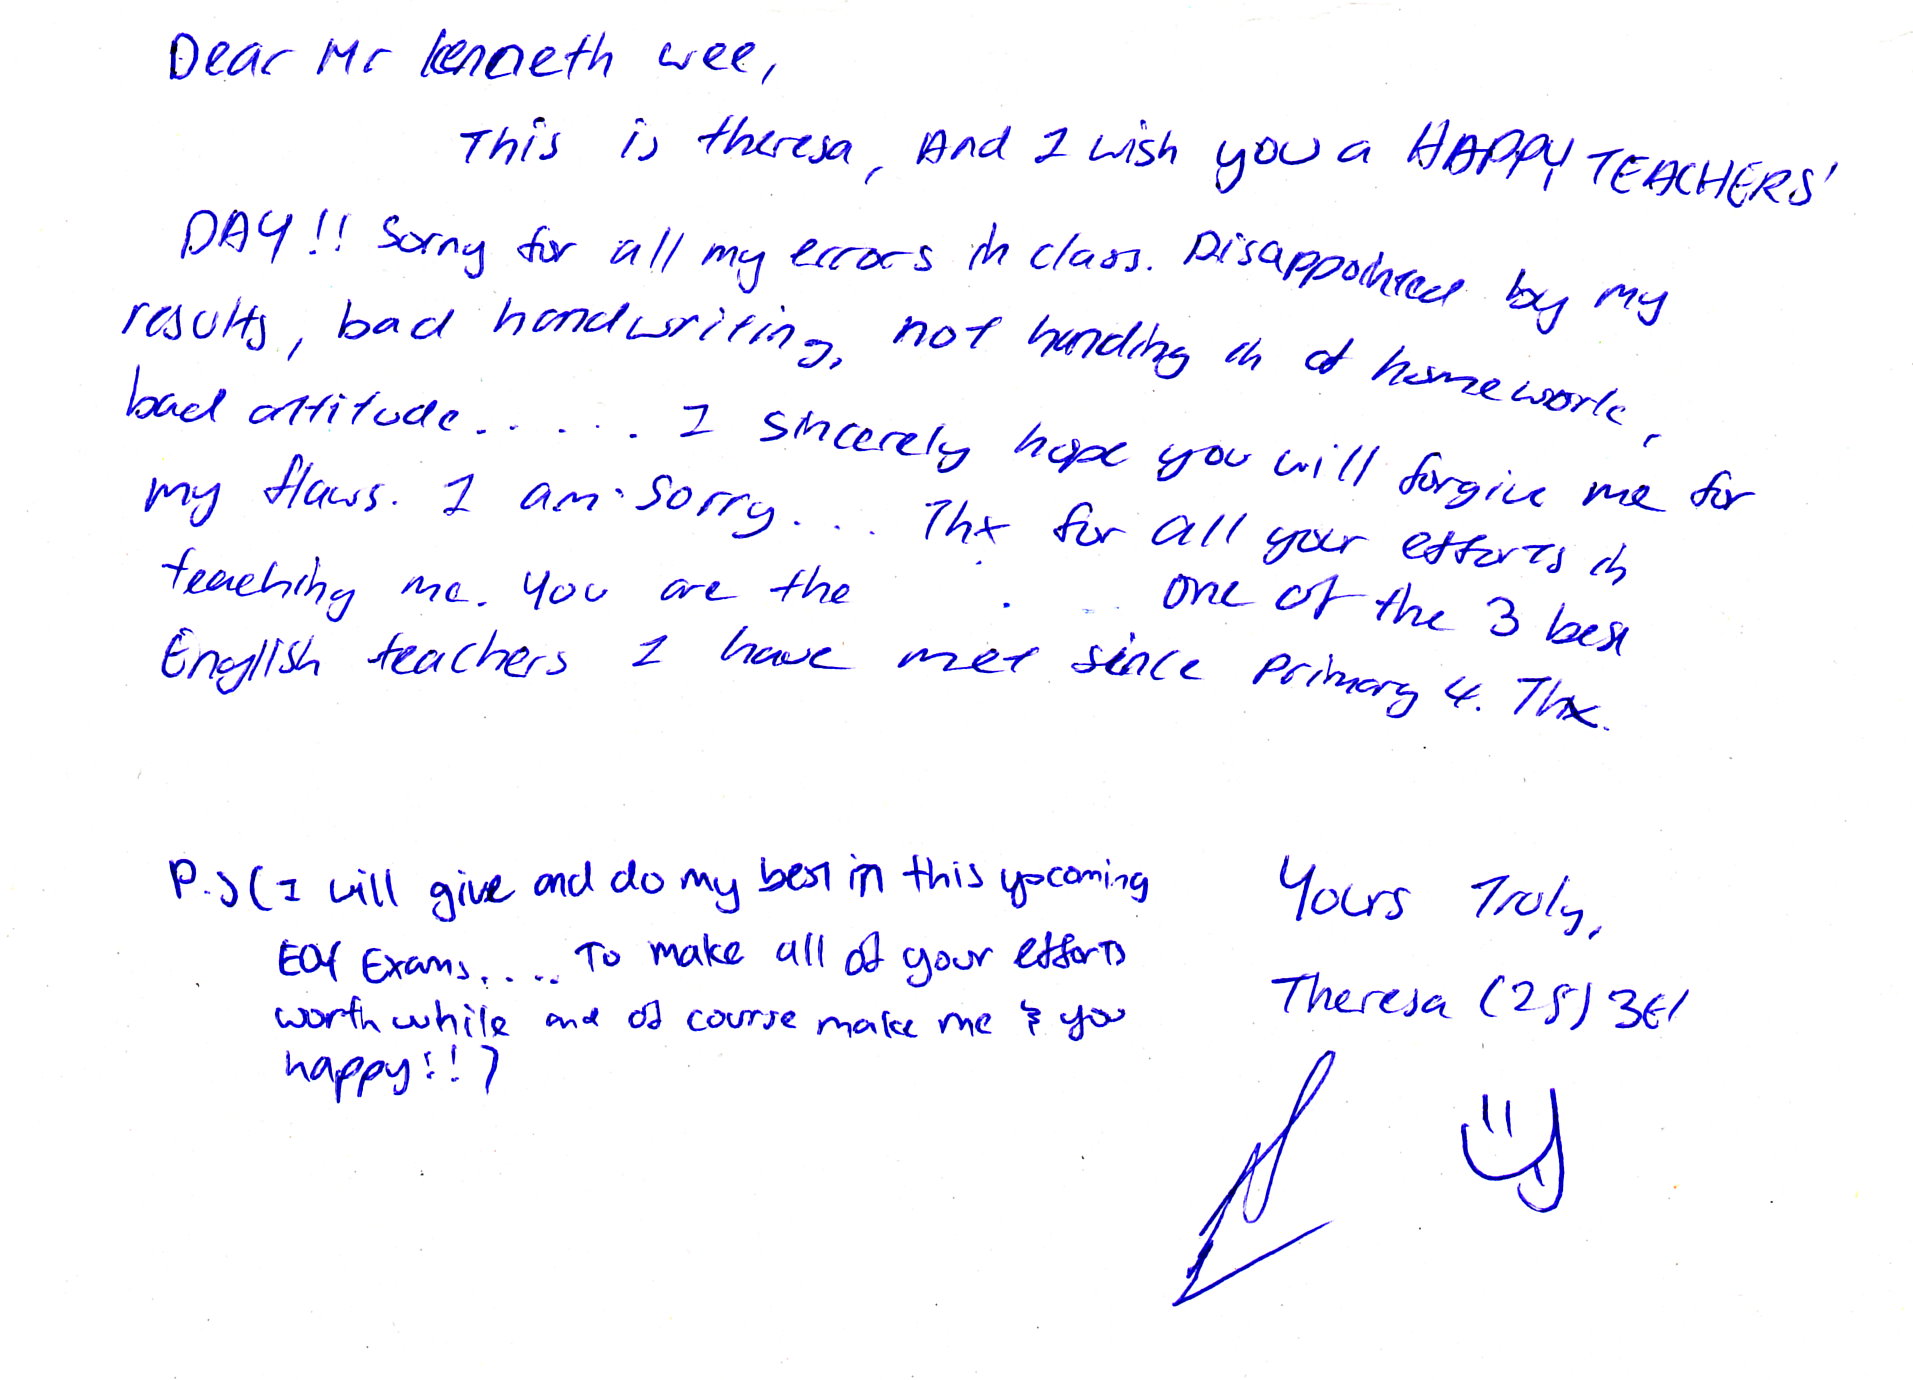 Dear Mr Kenneth wee,
This is theresa, And I wish you a HAPPY TEACHERS'
DAY!! Sorry for all my errors in class. Disappointed by my
results, bad handwriting, not handing in of homework,
bad attitude...... I sincerely hope you will forgive me for
my flaws. I am sorry... Thx for all your efforts in
teaching me. You are the . . . one of the 3 best
English teachers I have met since Primary 4. Thx.
P.S (I will give and do my best in this upcoming
EOY Exams..... To make all of your efforts
worth while and of course make me & you
happy!!)
Yours Truly,
Theresa (25) 3E1